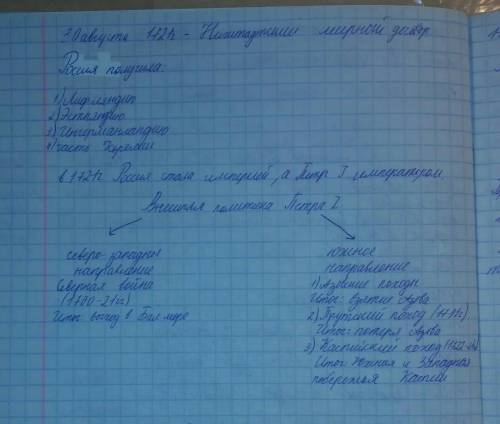 30 августа 1721г - Ништадский мирный договр
Россия получила:
1) Лифляндию
2) Эстляндию
3) Ингерманландию
4) часть Карелии
в 1721г Россия стала империей, а Петр I императором
Внешняя политика Петра I
северо-западное направление
Северная война
(1700-21гг)
Итог: выход в Бал море
южное
направление
1) Азовские походы
Итог: взятие Азова
2) Прутский поход (1711г)
Итог: потеря Азова
3) Каспийский поход (1722-
Итог: Южная и Западная
побережья Каспия